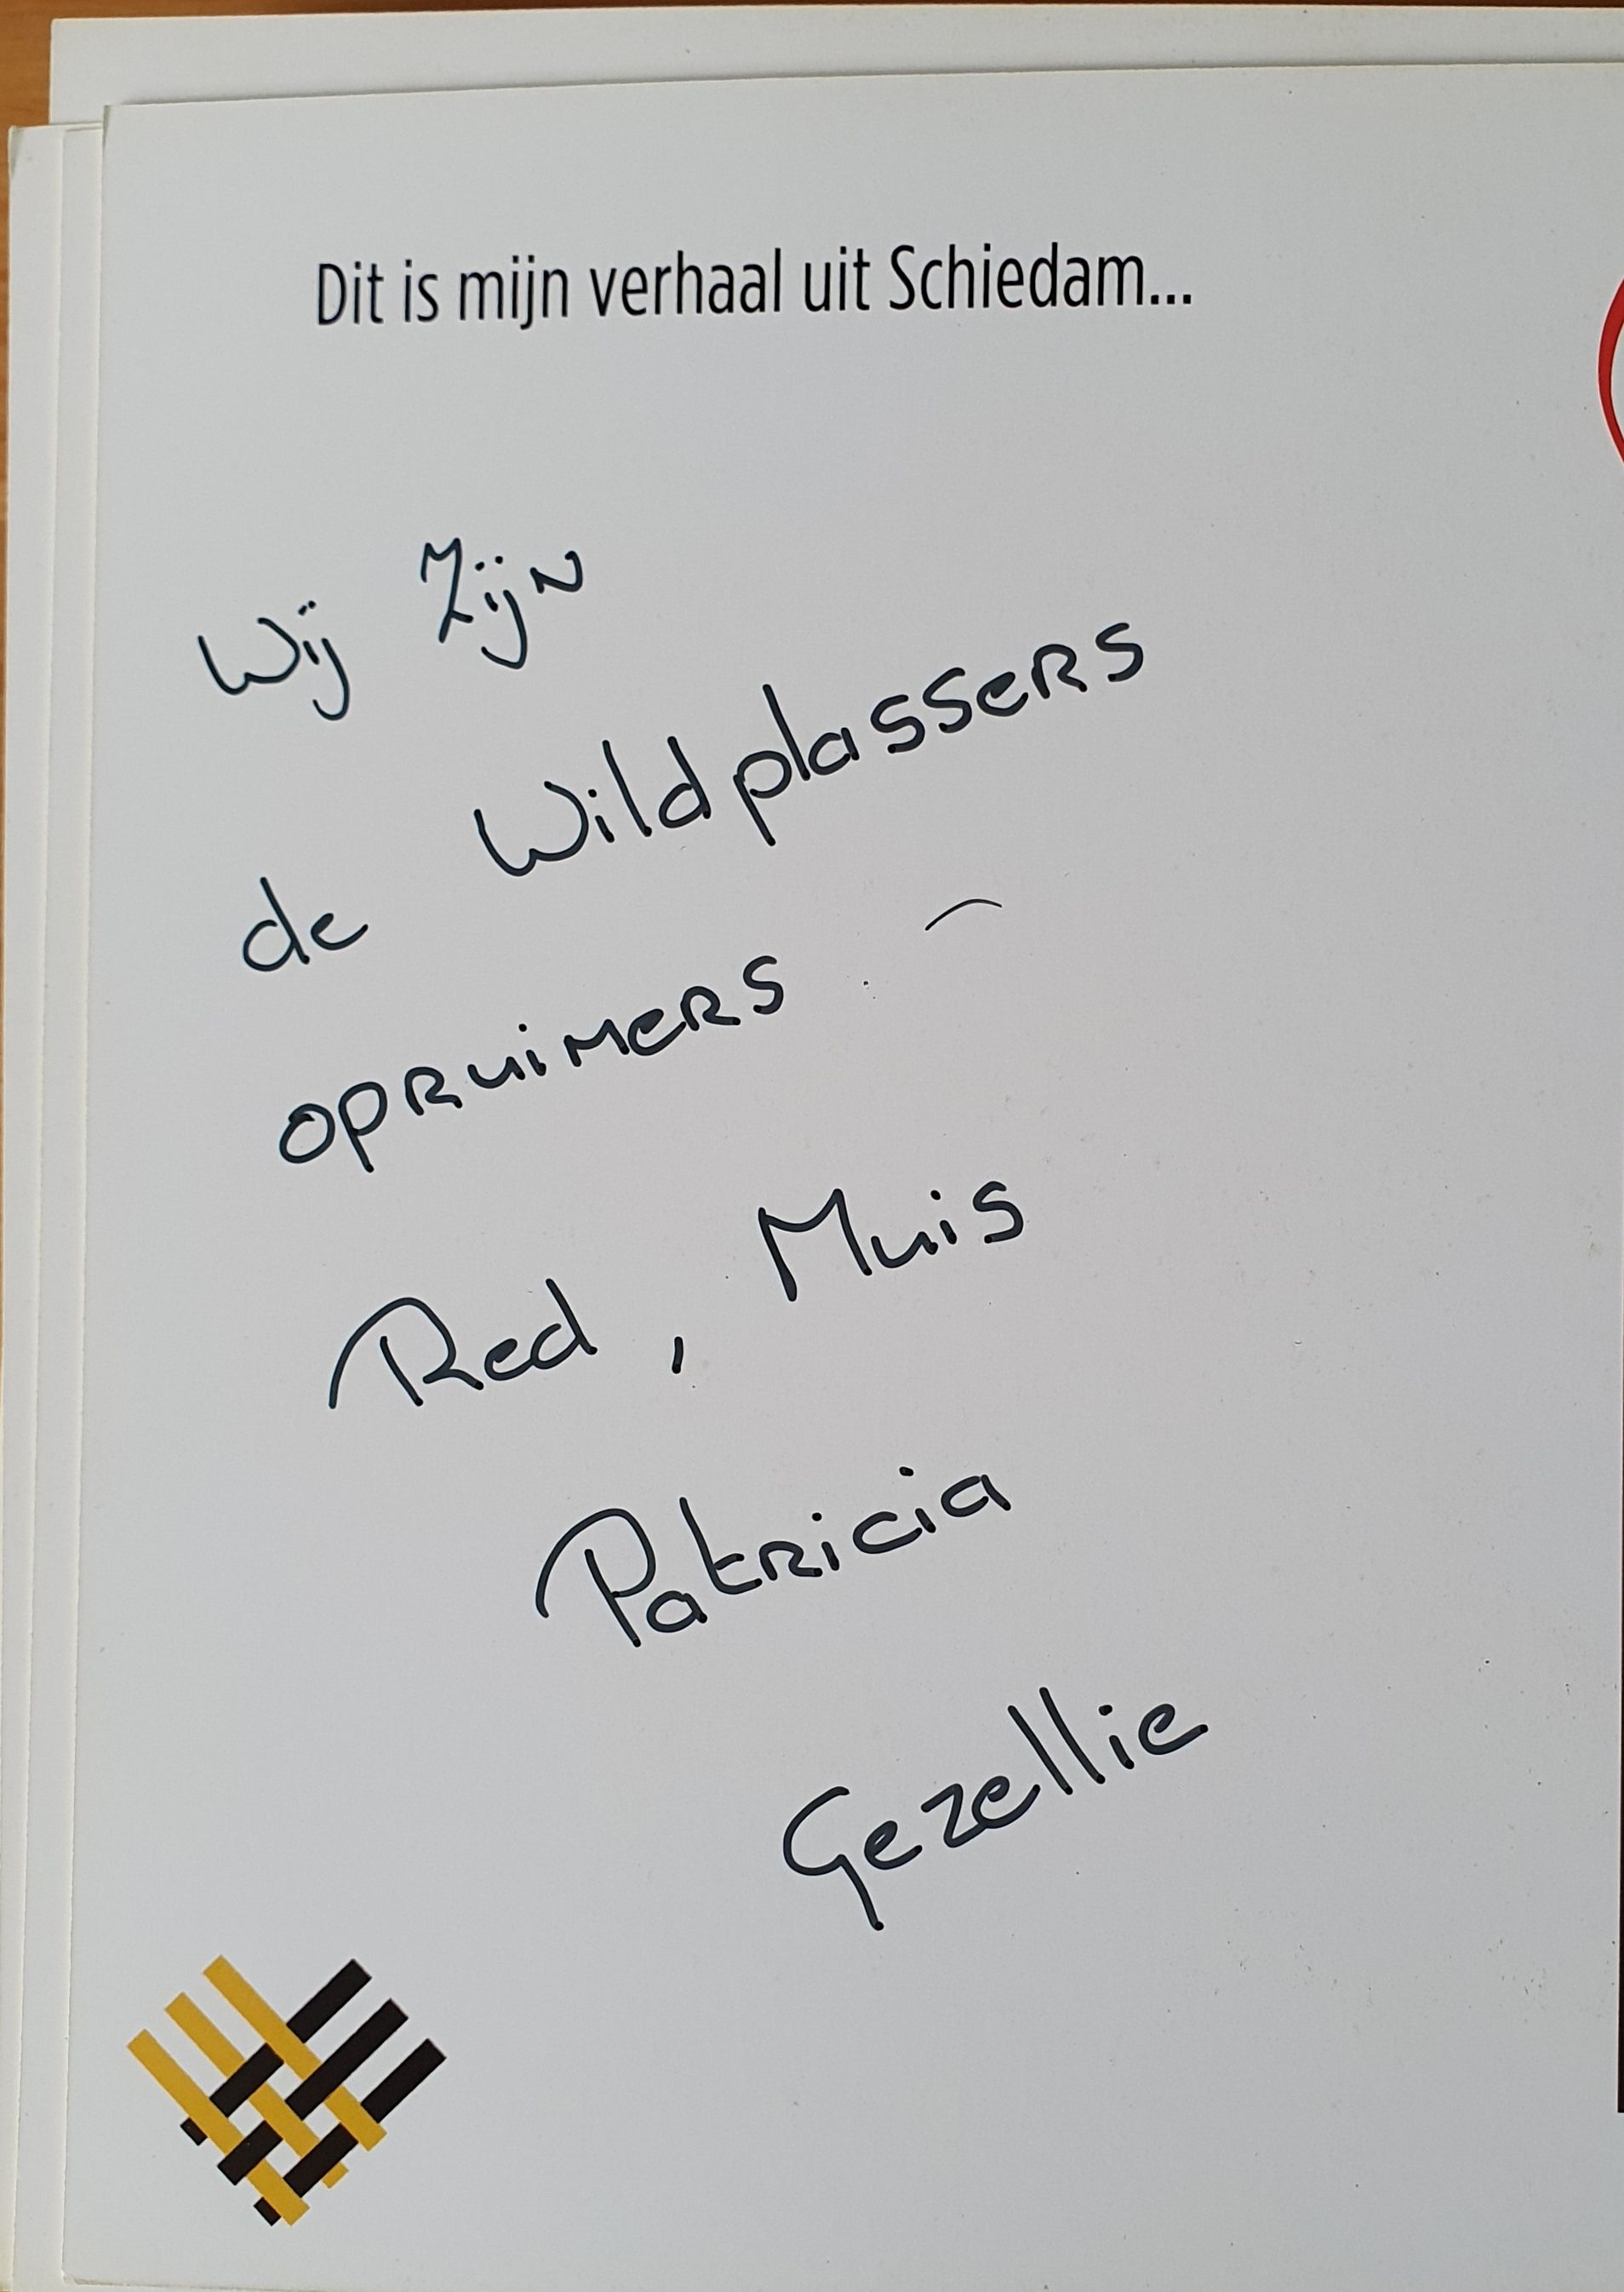 Dit is mijn verhaal uit Schiedam...
Wij Zijn
de Wildplassers
opruimers
Red, Muis
Patricia
Gezellie